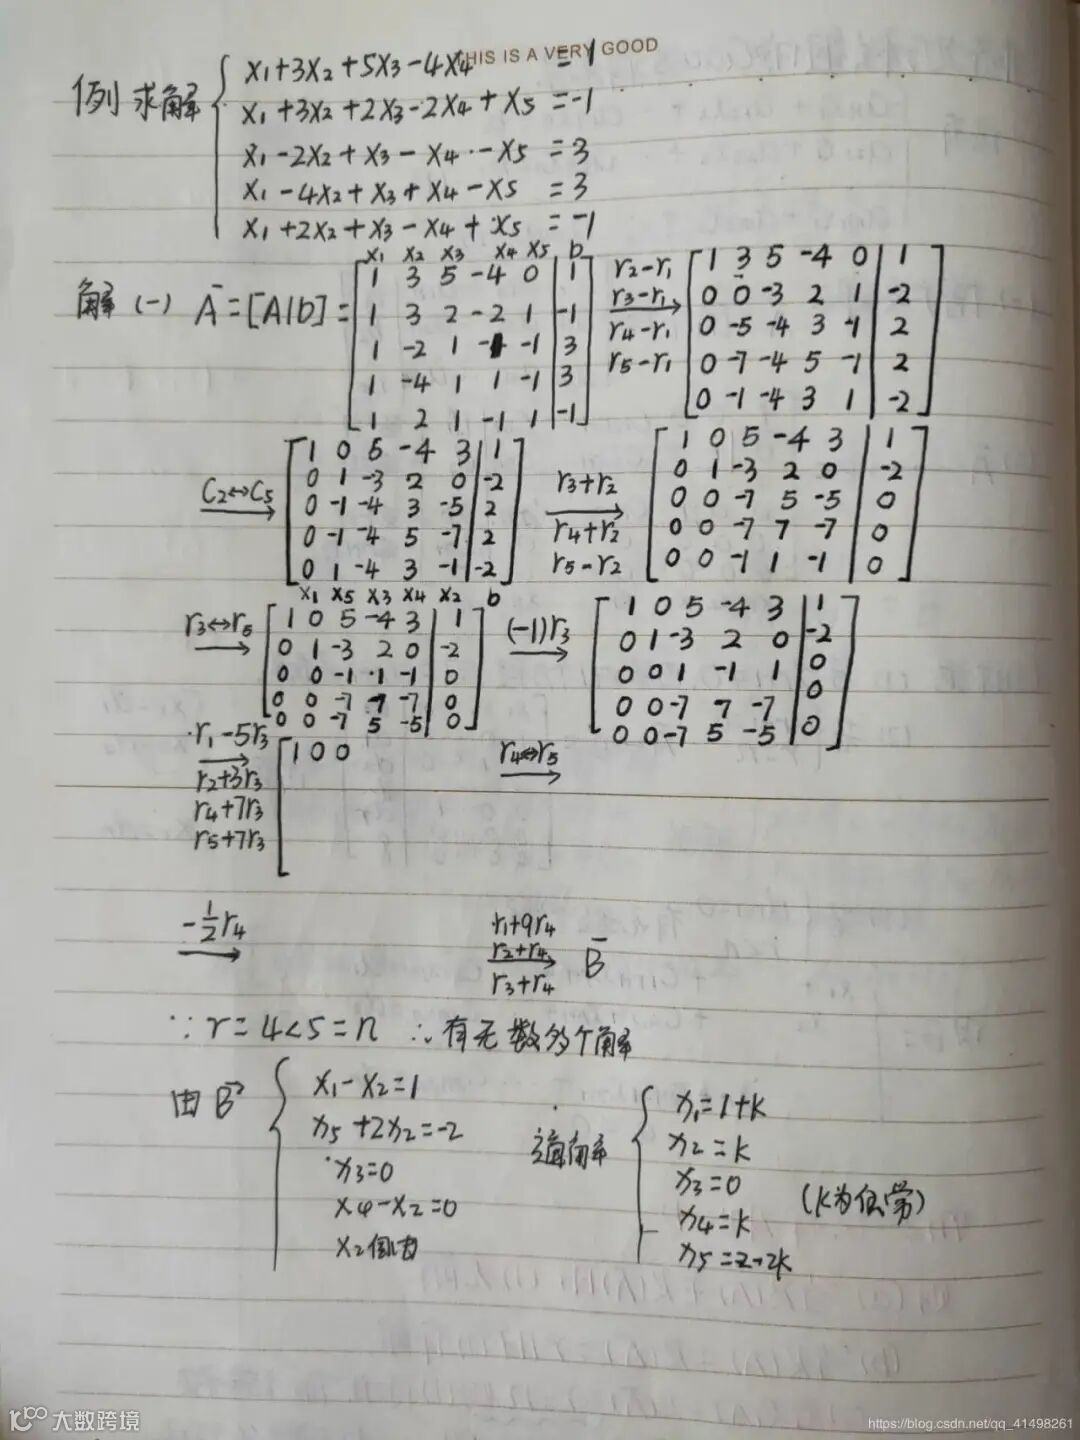 THIS IS A VERY GOOD
例 求解 { x1+3x2+5x3-4x4 =1
x1+3x2+2x3-2x4+x5 =-1
x1-2x2+x3-x4-x5 =3
x1-4x2+x3+x4-x5 =3
x1+2x2+x3-x4+x5 =-1
x1 x2 x3 x4 x5 b
解(一) Ā=[A|b]=
1 3 5 -4 0 | 1
1 3 2 -2 1 | -1
1 -2 1 -1 -1 | 3
1 -4 1 1 -1 | 3
1 2 1 -1 1 | -1
r2-r1
r3-r1
r4-r1
r5-r1
1 3 5 -4 0 | 1
0 0 -3 2 1 | -2
0 -5 -4 3 -1 | 2
0 -7 -4 5 -1 | 2
0 -1 -4 3 1 | -2
C2↔C5
1 0 5 -4 3 | 1
0 1 -3 2 0 | -2
0 -1 -4 3 -5 | 2
0 -1 -4 5 -7 | 2
0 1 -4 3 -1 | -2
x1 x5 x3 x4 x2 b
r3+r2
r4+r2
r5-r2
1 0 5 -4 3 | 1
0 1 -3 2 0 | -2
0 0 -7 5 -5 | 0
0 0 -7 7 -7 | 0
0 0 -1 1 -1 | 0
r3↔r5
1 0 5 -4 3 | 1
0 1 -3 2 0 | -2
0 0 -1 1 -1 | 0
0 0 -7 7 -7 | 0
0 0 -7 5 -5 | 0
(-1)r3
1 0 5 -4 3 | 1
0 1 -3 2 0 | -2
0 0 1 -1 1 | 0
0 0 -7 7 -7 | 0
0 0 -7 5 -5 | 0
r1-5r3
r2+3r3
r4+7r3
r5+7r3
1 0 0
r4↔r5
-1/2 r4
r1+9r4
r2+r4
r3+r4
B̄
∵ r=4<5=n ∴有无数多个解
由B̄ { x1-x2=1
x5+2x2=-2
x3=0
x4-x2=0
x2自由
通解 { x1=1+k
x2=k
x3=0
x4=k
x5=2-2k
(k为任常)
大数跨境
https://blog.csdn.net/qq_41498261